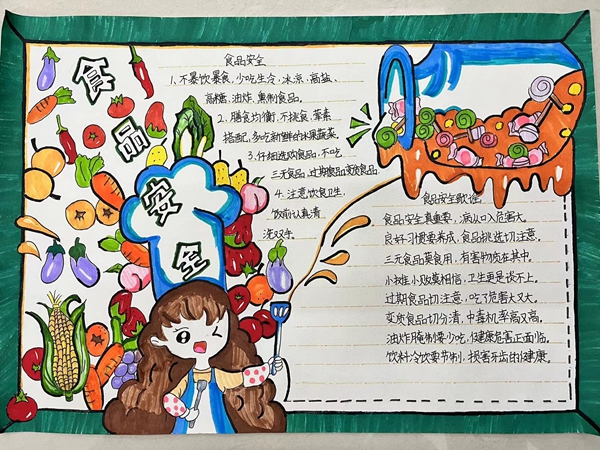 食品安全
食品安全
1、不暴饮暴食，少吃生冷，冰凉，高盐、
高糖，油炸，熏制食品。
2、膳食均衡，不挑食，荤素
搭配，多吃新鲜的水果蔬菜。
3、仔细选购食品，不吃
三无食品，过期食品变质食品
4、注意饮食卫生，
饮前认真清
洗双手。
食品安全歌谣
食品安全真重要，病从口入危害大。
良好习惯要养成，食品挑选切注意。
三无食品莫食用，有害物质在其中。
小摊小贩莫相信，卫生更是谈不上。
过期食品切注意，吃了危害大又大。
变质食品切分清，中毒机率高又高。
油炸腌制要少吃，健康危害正面临。
饮料冷饮要节制，损害牙齿的健康。